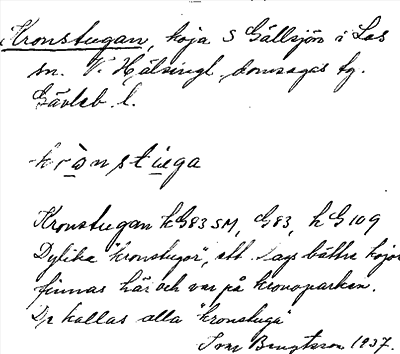 Kronstugan, koja S Gällsjön i Los
sn. V. Hälsingl. domsagas tg.
Gävleb. l.
krònstuga
Kronstugan hG83SM, G83, hG109
Dylika "kronstugor", ett slags bättre kojor
finnas här och var på kronoparken.
De kallas alla "kronstuga"
Bengtsson 1937.